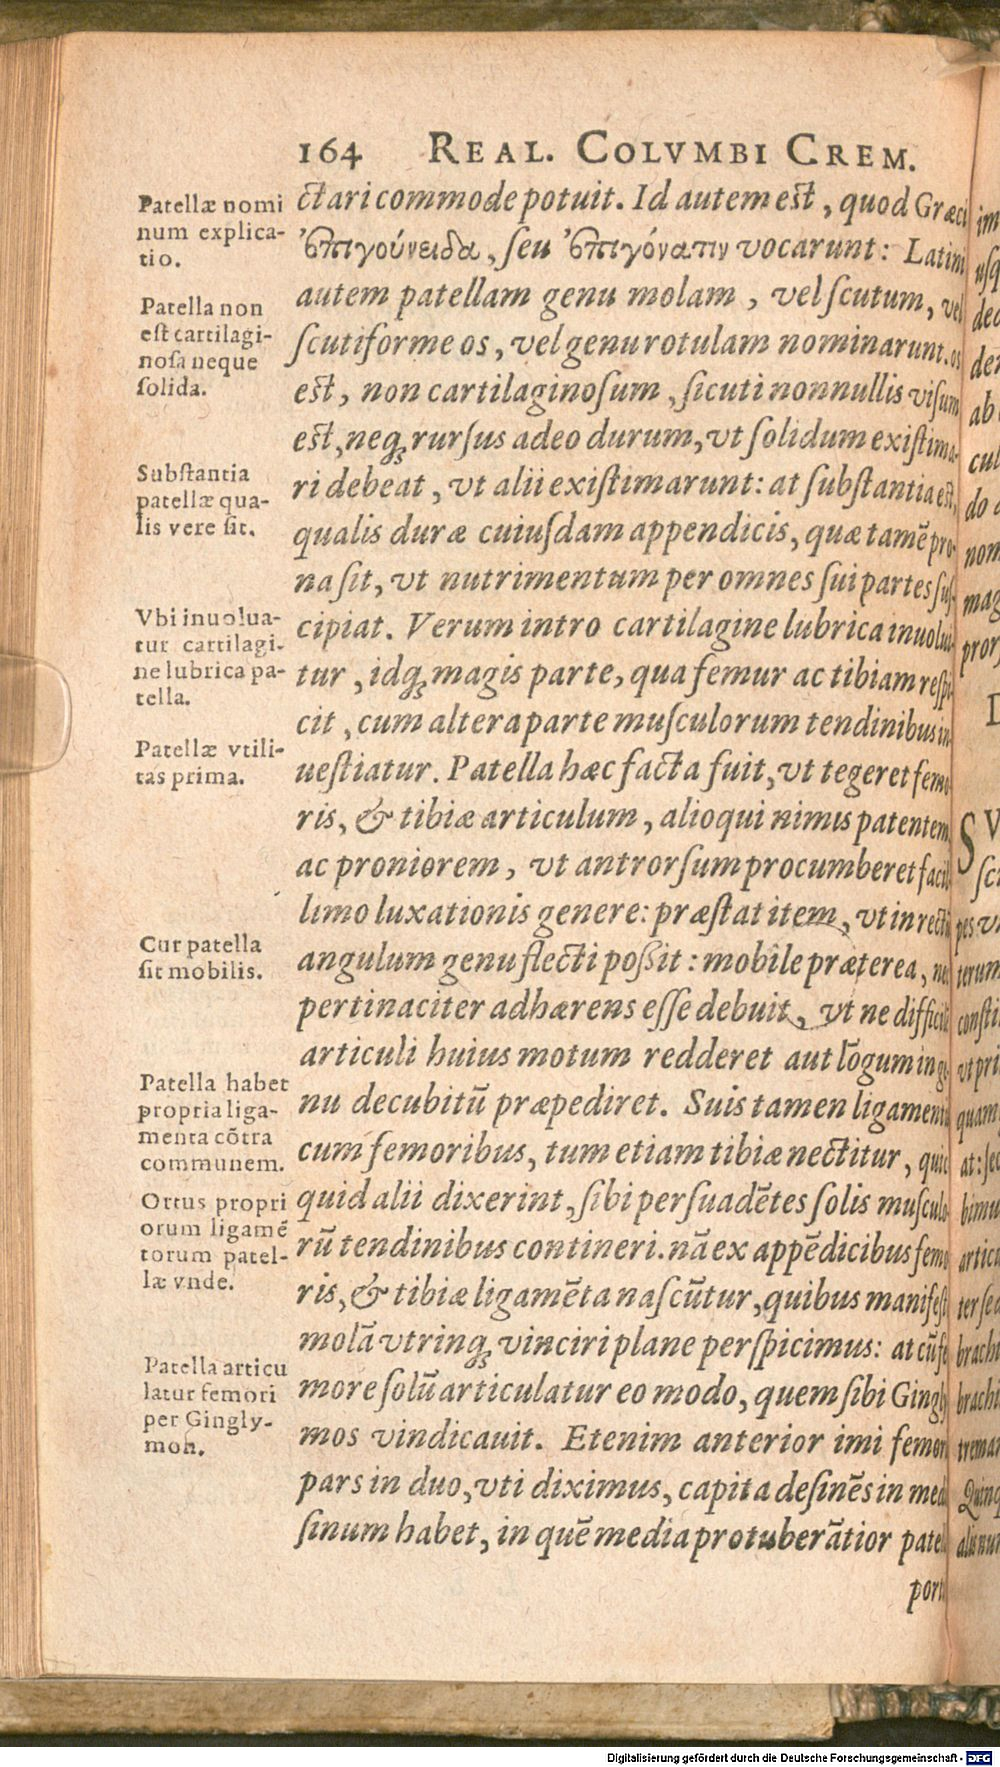 164 REAL. COLVMBI CREM.
Patellæ nomi
num explica-
tio.
Patella non
est cartilagi-
nosa neque
solida.
Substantia
patellæ qua-
lis vere sit.
Vbi inuolua-
tur cartilagi-
ne lubrica pa-
tella.
Patellæ vtili-
tas prima.
Cur patella
sit mobilis.
Patella habet
propria liga-
menta cõtra
communem.
Ortus propri
orum ligamẽ
torum patel-
læ vnde.
Patella articu
latur femori
per Gingly-
mon.
ctari commode potuit. Id autem est, quod Græci
ἐπιγούνειδα, seu ἐπιγόνατιν vocarunt: Latini
autem patellam genu molam, vel scutum, vel
scutiforme os, vel genu rotulam nominarunt. os
est, non cartilaginosum, sicuti nonnullis visum
est, neq; rursus adeo durum, vt solidum existima-
ri debeat, vt alii existimarunt: at substantia est,
qualis duræ cuiusdam appendicis, quæ tamẽ pro-
na sit, vt nutrimentum per omnes sui partes sus-
cipiat. Verum intro cartilagine lubrica inuolui-
tur, idq; magis parte, qua femur ac tibiam respi-
cit, cum altera parte musculorum tendinibus in-
uestiatur. Patella hæc facta fuit, vt tegeret femo-
ris, & tibiæ articulum, alioqui nimis patentem,
ac proniorem, vt antrorsum procumberet facil
limo luxationis genere: præstat item, vt in rectũ
angulum genu flecti possit: mobile præterea, ne
pertinaciter adhærens esse debuit, vt ne difficile
articuli huius motum redderet aut lõgum in ge
nu decubitũ præpediret. Suis tamen ligamentis
cum femoribus, tum etiam tibiæ nectitur, quic
quid alii dixerint, sibi persuadẽtes solis musculo
rũ tendinibus contineri. nã ex appẽdicibus femo
ris, & tibiæ ligamẽta nascũtur, quibus manifeste
molã vtrinq; vinciri plane perspicimus: at cũ fe
more solũ articulatur eo modo, quem sibi Gingly
mos vindicauit. Etenim anterior imi femoris
pars in duo, vti diximus, capita desinẽs in medio
sinum habet, in quẽ media protuberãtior patellæ